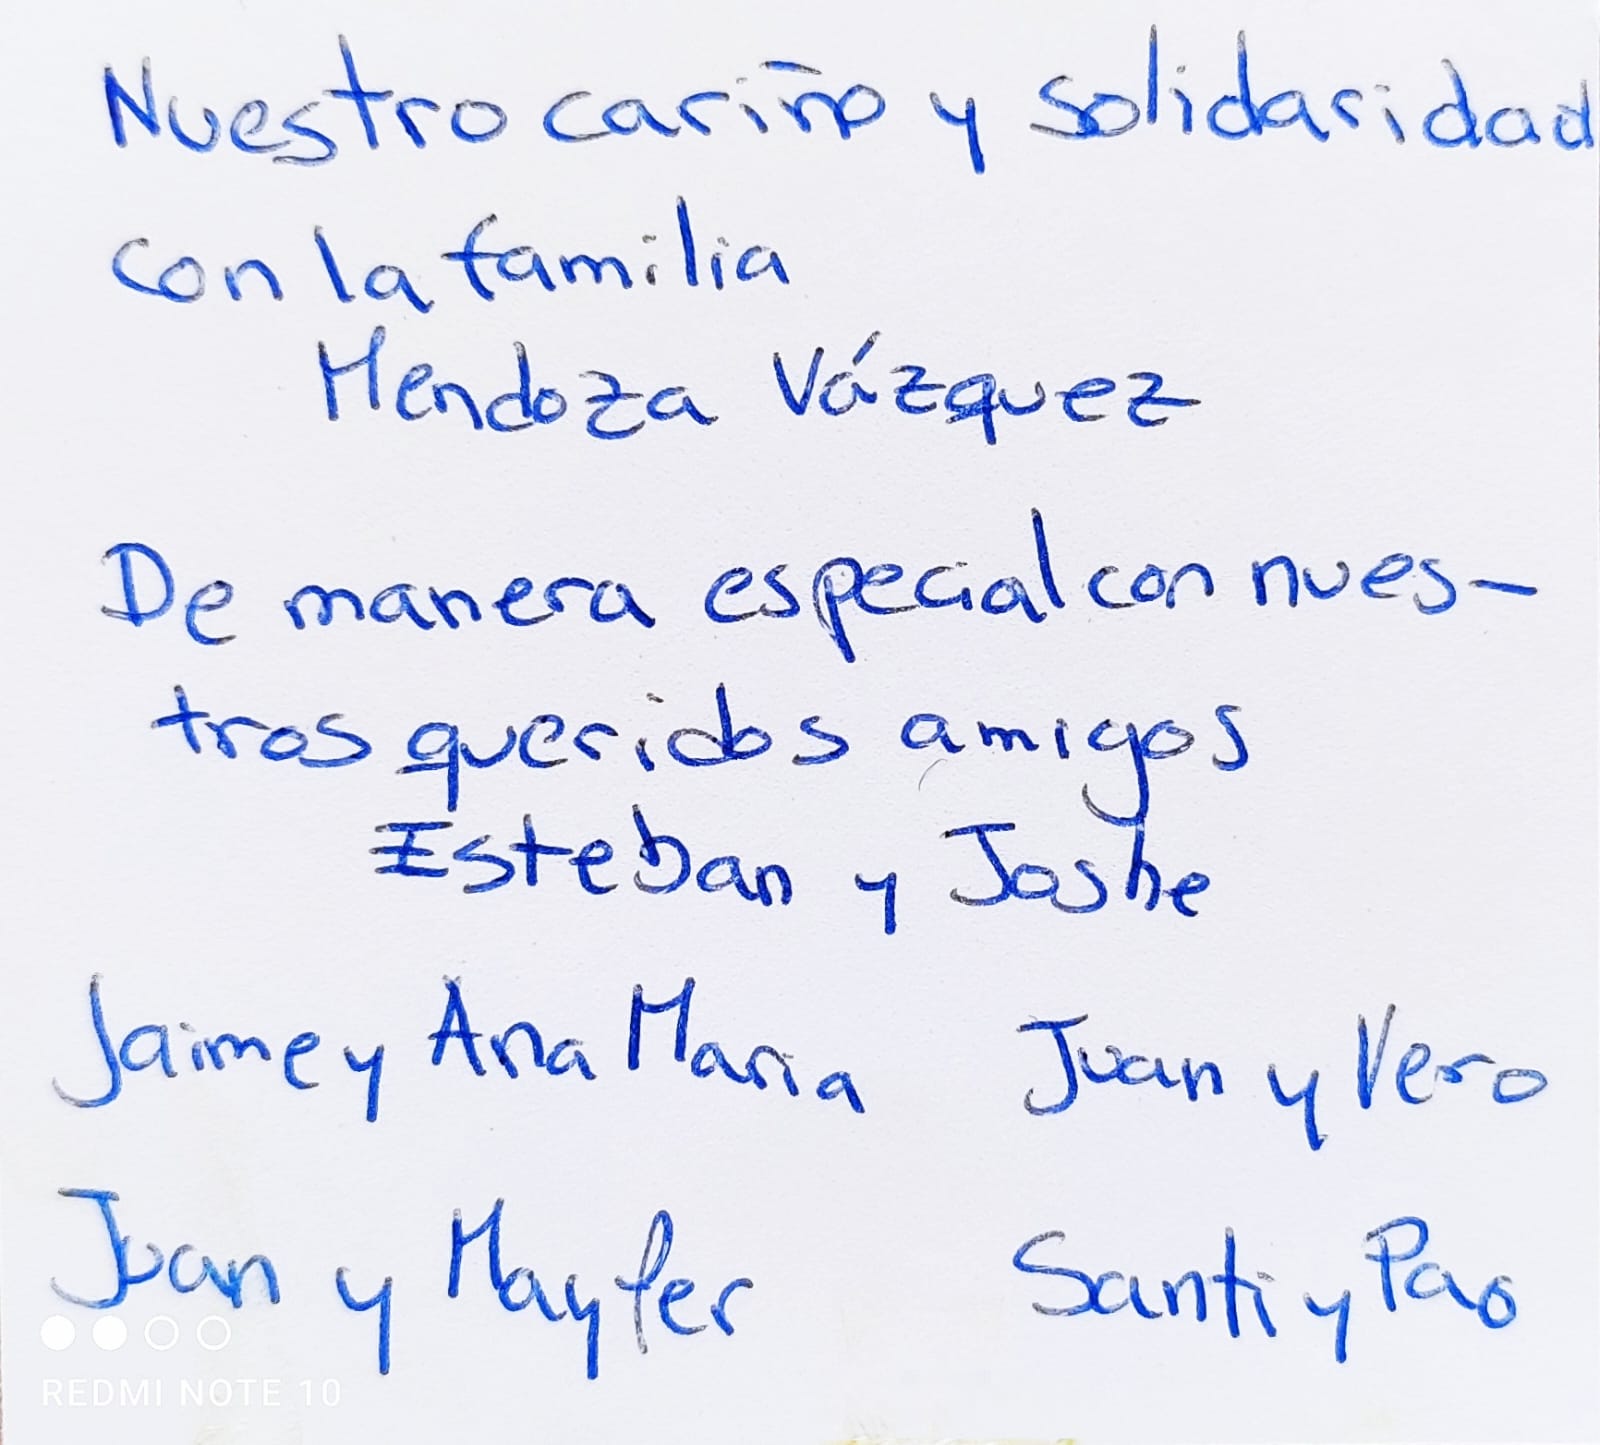 Nuestro cariño y solidaridad
con la familia
Mendoza Vázquez
De manera especial con nues-
tros queridos amigos
Esteban y Joshe
Jaime y Ana Maria Juan y Vero
Juan y Mayfer Santi y Pao
REDMI NOTE 10